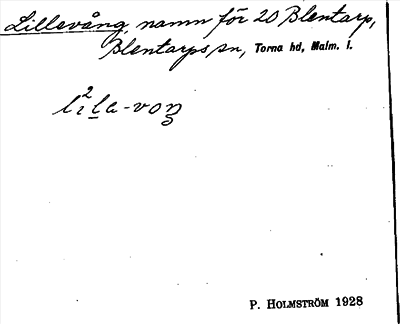 Lillevång, namn för 20 Blentarp,
Blentarps sn, Torna hd, Malm. l.
li²l̲a-voŋ
P. HOLMSTRÖM 1928